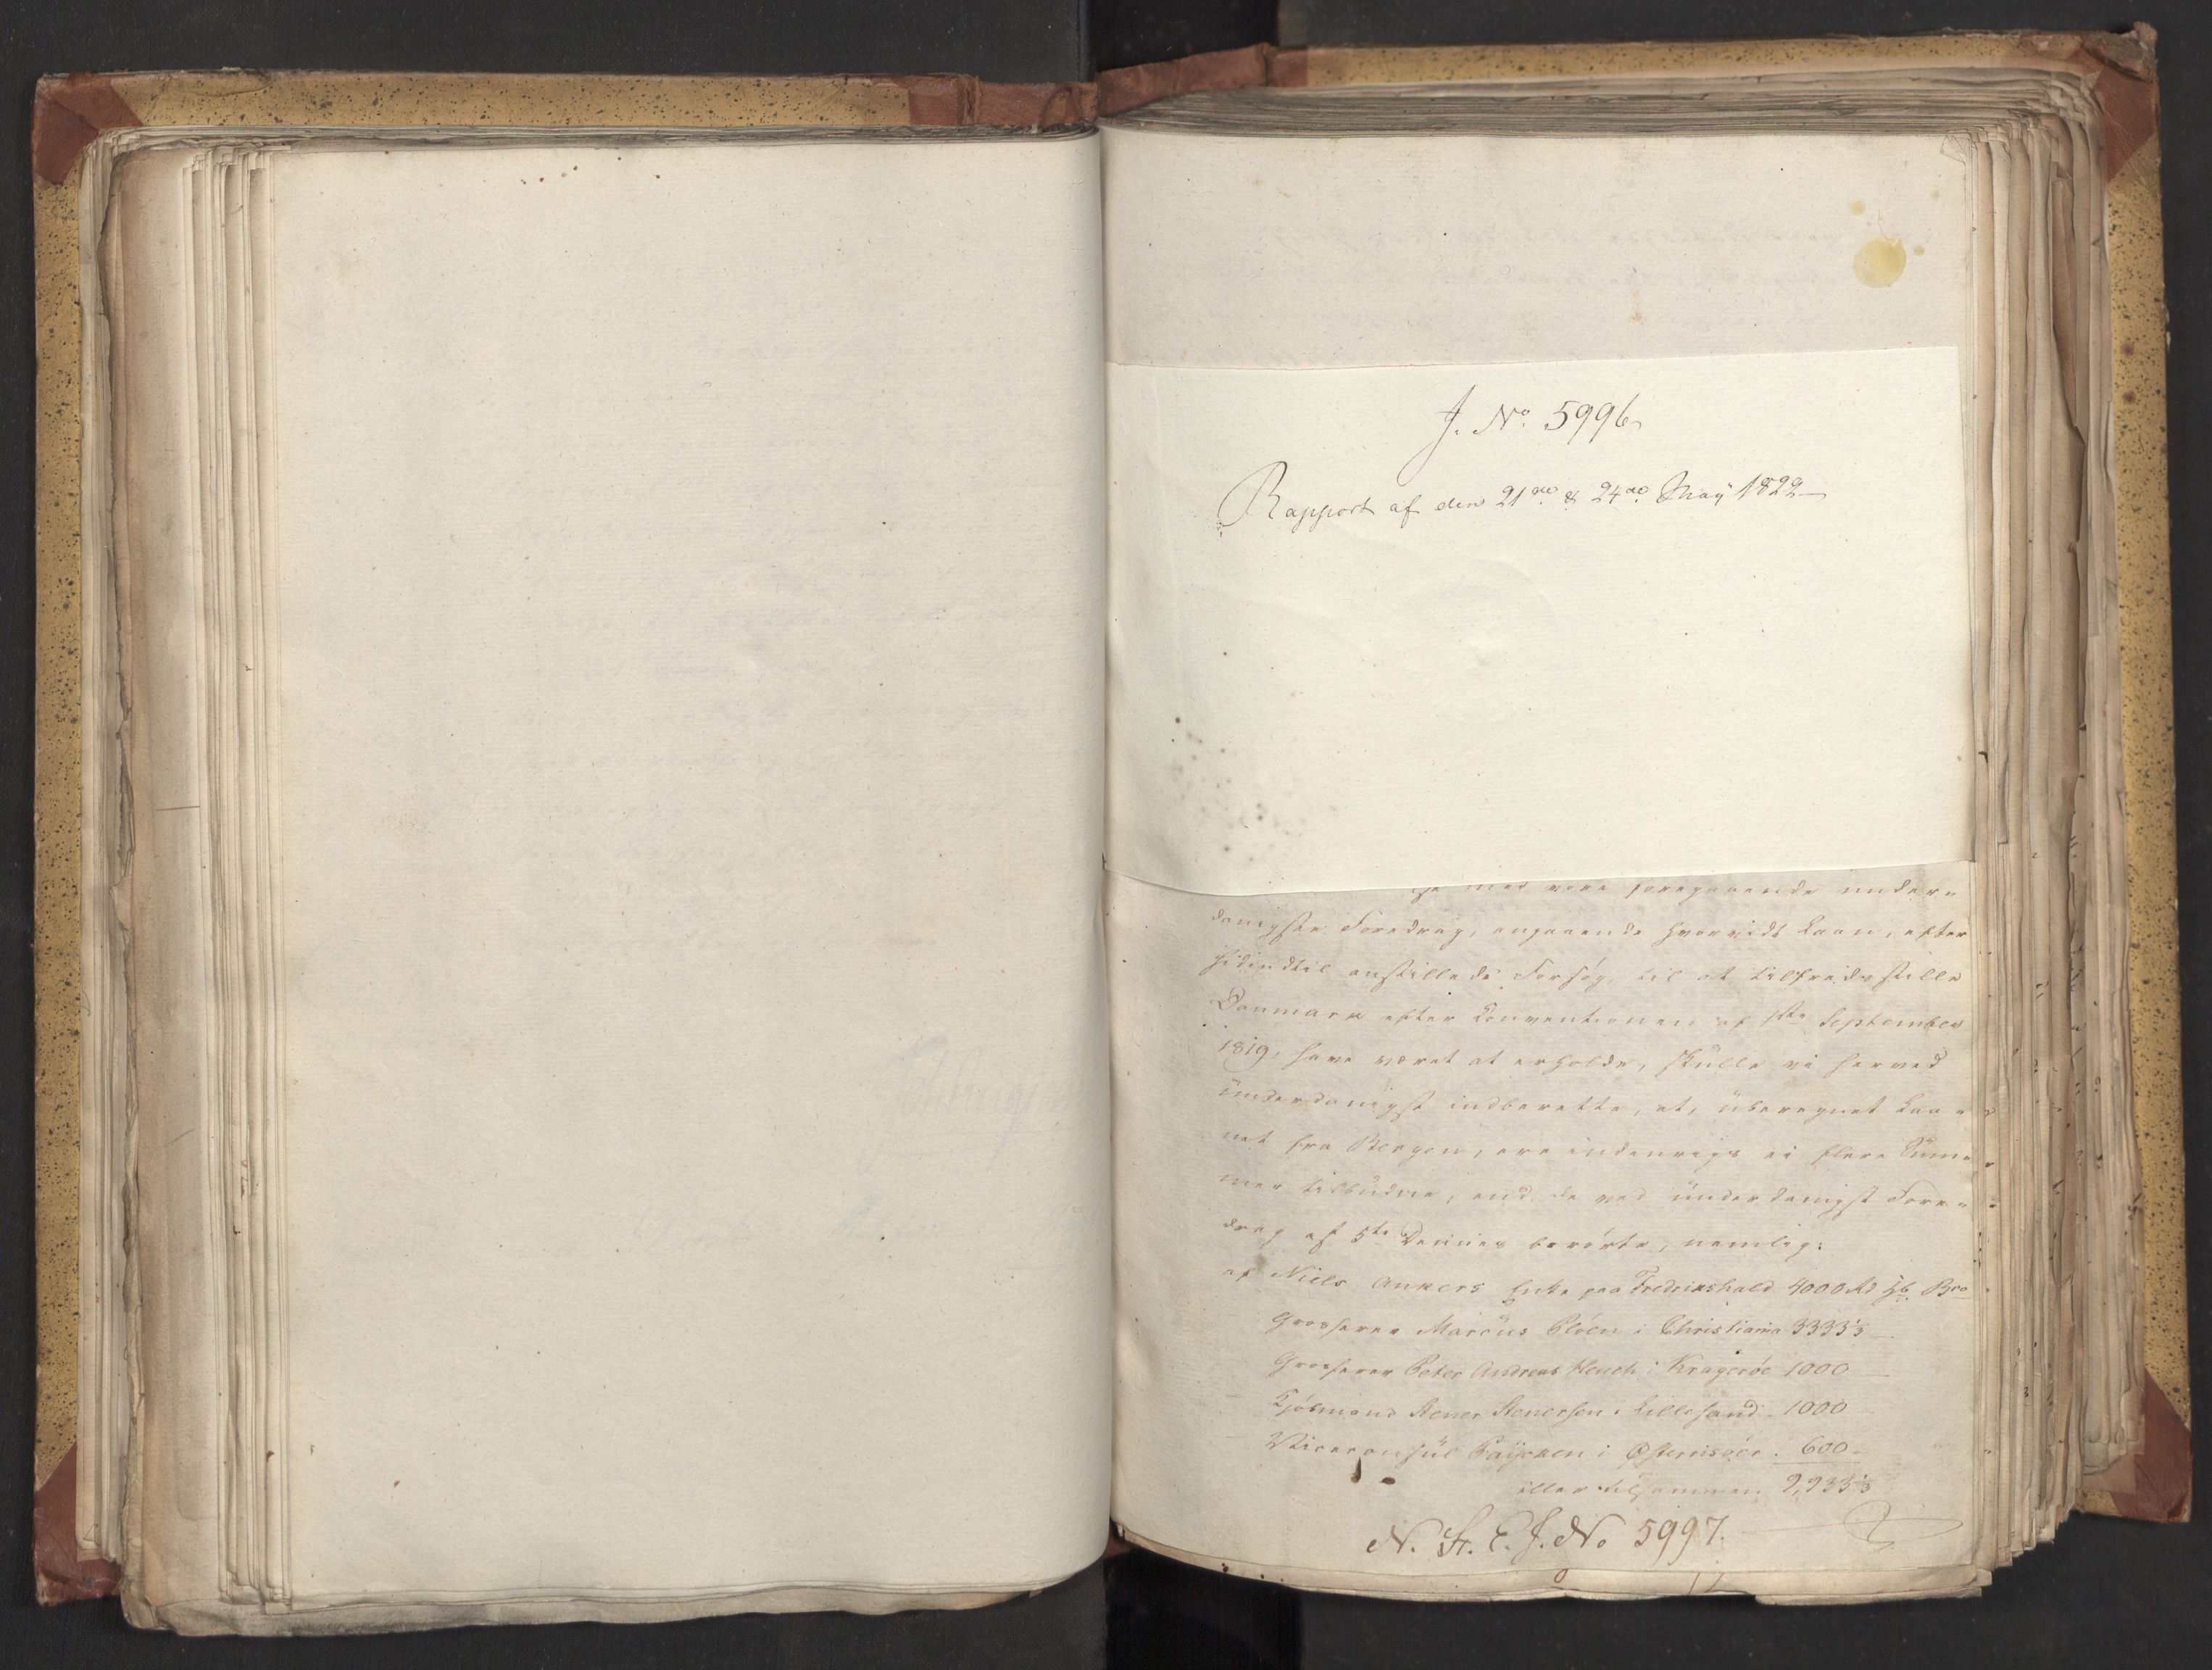 J. No. 5996
Rapport af den 21de & 24de May 1822
med vore foregaaende under-
danigste Foredrag, angaaende hvorvidt Laan, efter
hidindtil anstillede Forsøg, til at tilfredsstille
Danmark efter Conventionen af 1ste September
1819, have været at erholde, skulle vi herved
underdanigst indberette, at, uberegnet Laa-
net fra Bergen, ere indenrigs ei flere Sum-
mer tilbudne, end de ved underdanigst Fore-
drag af 5te Dennes berørte, nemlig:
af Niels Ankers Enke paa Fredrikshald 4000 Hb. Bco
Grosserer Marcus Pløen i Christiania 3333⅓
Grosserer Peter Andreas Heuch i Kragerøe 1000
Kjøbmand Stener Stenersen i Lillesand 1000
Viceconsul i Østerrisøer 600
eller tilsammen 9,933⅓
N. H. C. J. No 5997.